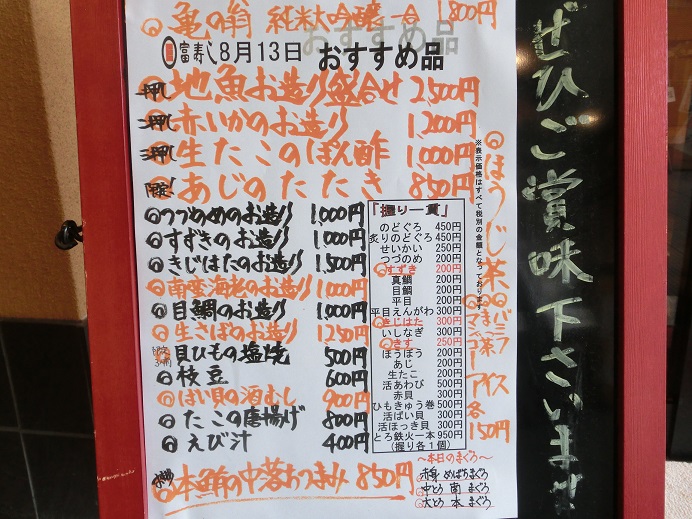 亀の翁 純米大吟醸一合 1,800円
富寿し 8月13日 おすすめ品
押し 地魚お造り盛合せ 2,500円
押し 赤いかのお造り 1,200円
押し 生たこのぽん酢 1,000円
あじのたたき 850円
つづのめのお造り 1,000円
すずきのお造り 1,000円
きじはたのお造り 1,500円
南蛮海老のお造り 1,000円
目鯛のお造り 1,000円
生さばのお造り 1,250円
貝ひもの塩焼 500円
枝豆 600円
ばい貝の酒むし 900円
たこの唐揚げ 800円
えび汁 400円
本鮪の中落おつまみ 850円
「握り一貫」
のどぐろ 450円
炙りのどぐろ 450円
せいかい 250円
つづのめ 200円
すずき 200円
真鯛 200円
目鯛 200円
平目 200円
平目えんがわ 300円
きじはた 300円
いしなぎ 300円
きす 250円
ほうぼう 200円
あじ 200円
生たこ 200円
活あわび 500円
赤貝 300円
ひもきゅう巻 500円
活ばい貝 300円
活ほっき貝 300円
とろ鉄火一本 950円
(握り各1個)
～本日のまぐろ～
赤身 めばちまぐろ
中とろ 南まぐろ
大とろ 本まぐろ
※表示価格はすべて税別の金額となっております。
ほうじ茶
バニラ
ごま
抹茶
マンゴー
アイス各150円
ぜひご賞味下さいませ